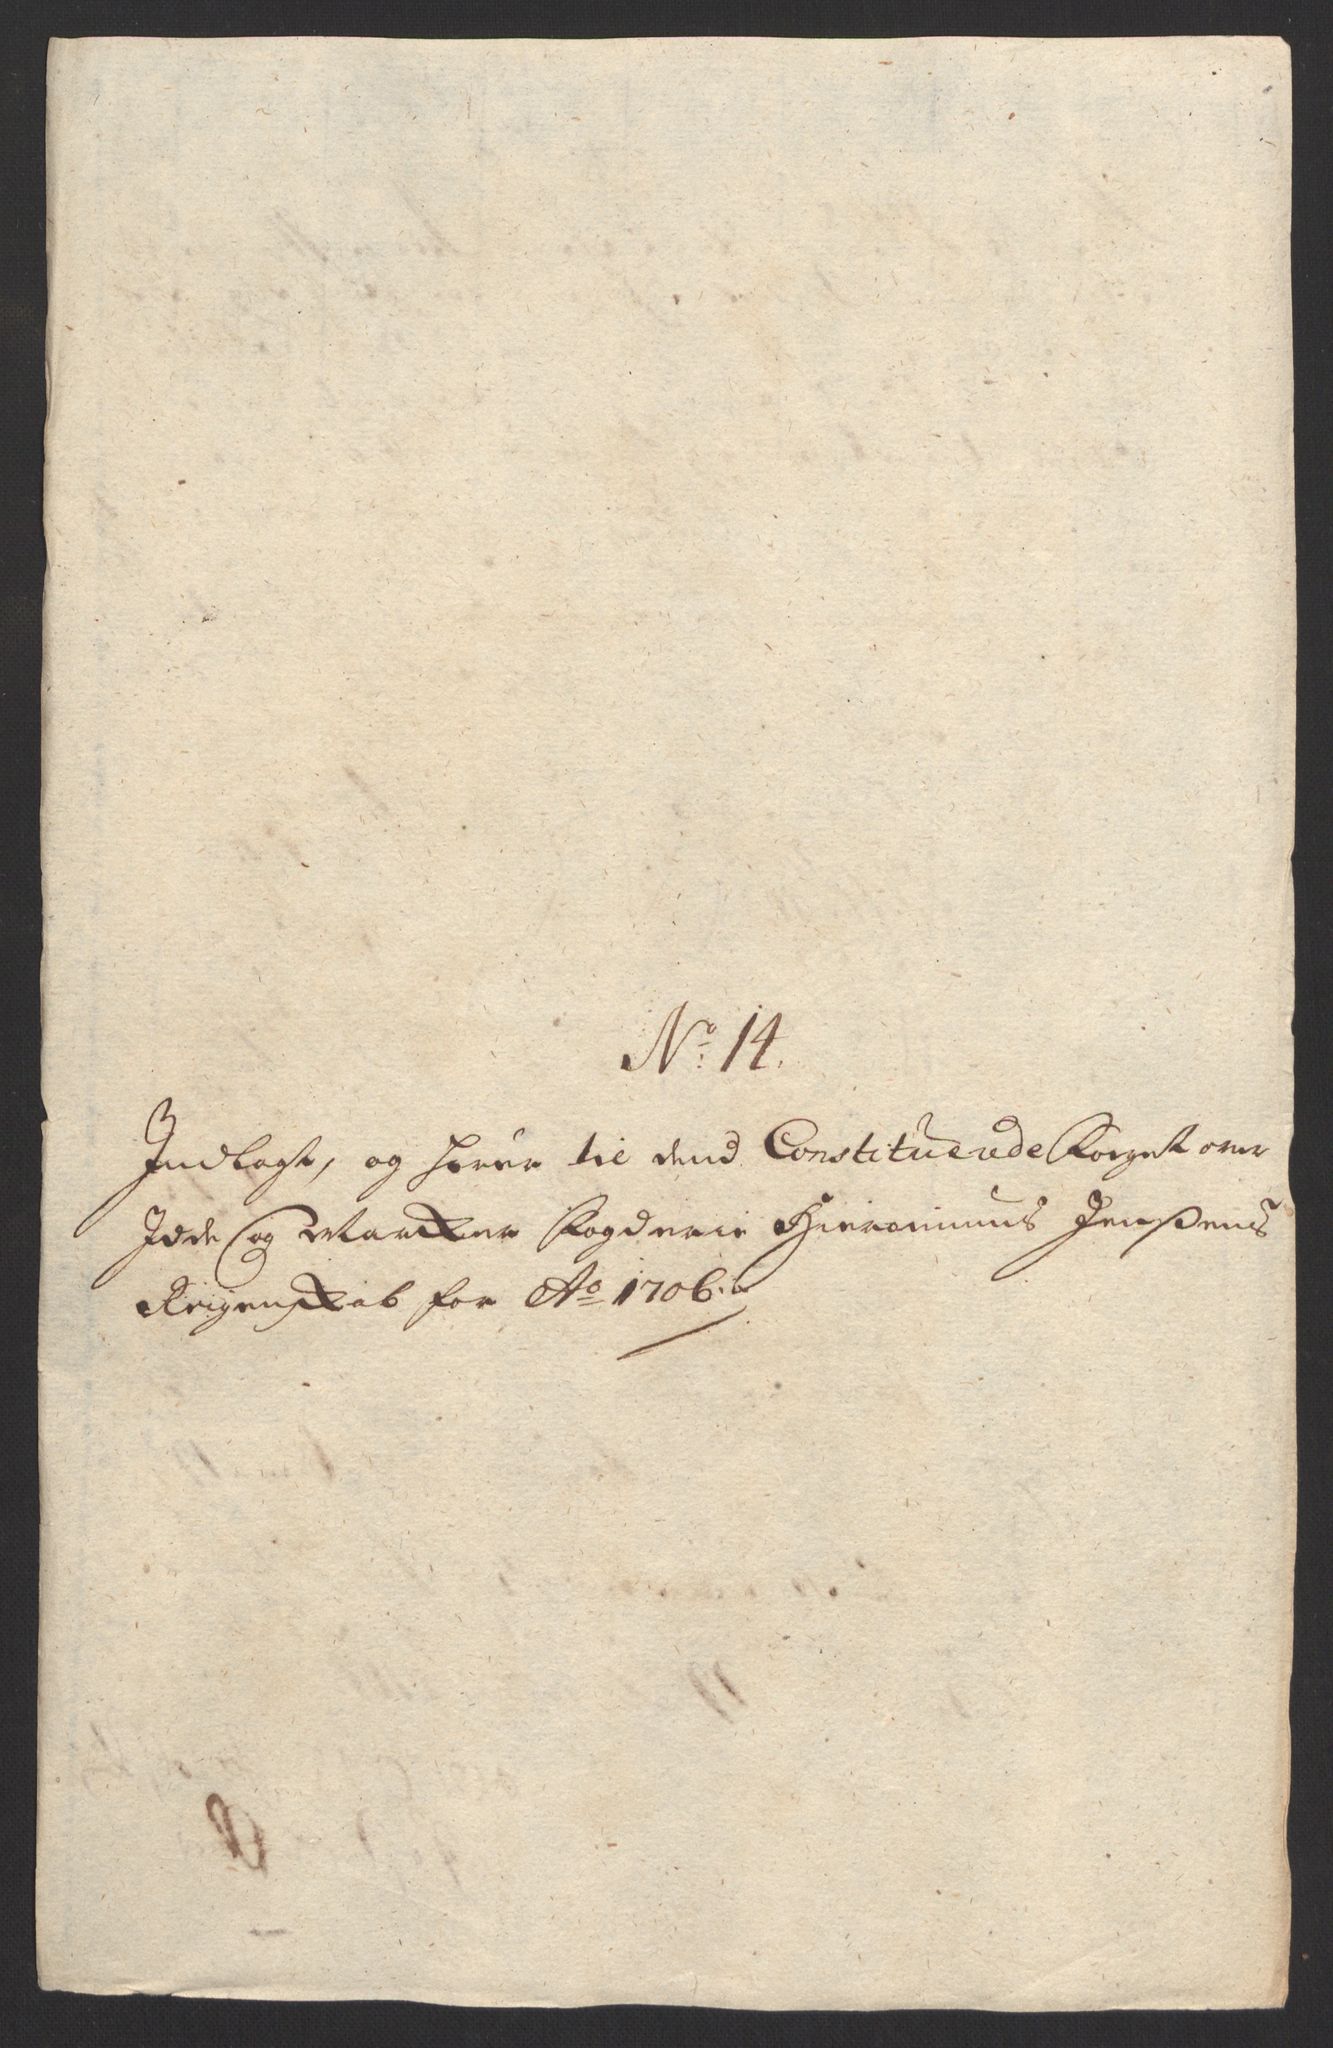 No: 14.
Indlagt, og hører til dend Constituerede Foeget over
Idde og Marcker Fogderie Hieronimus Jenßens
Reigenskab for Ao 1706.